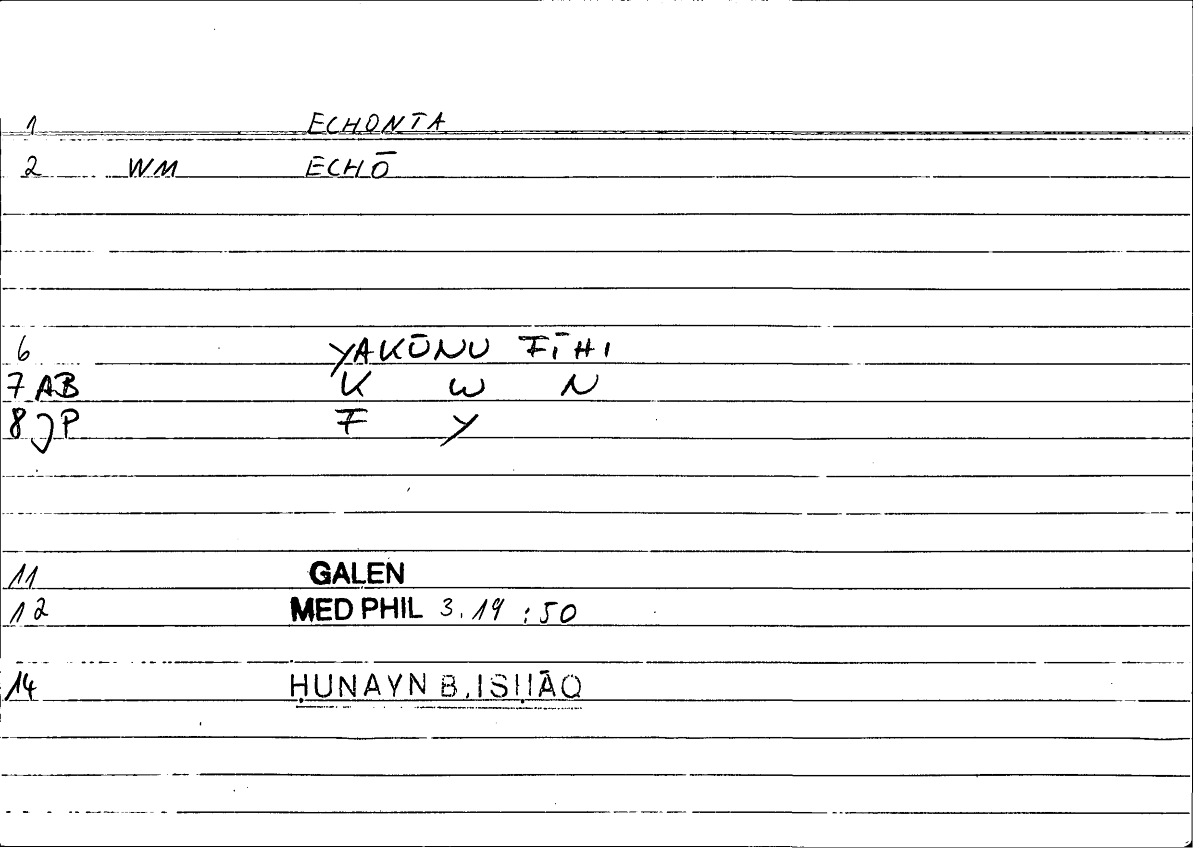 1 ECHONTA
2 WM ECHŌ
6 YAKŪNU FĪHI
7 AB K W N
8 JP F Y
11 GALEN
12 MED PHIL 3.19 :50
14 ḤUNAYN B. ISḤĀQ